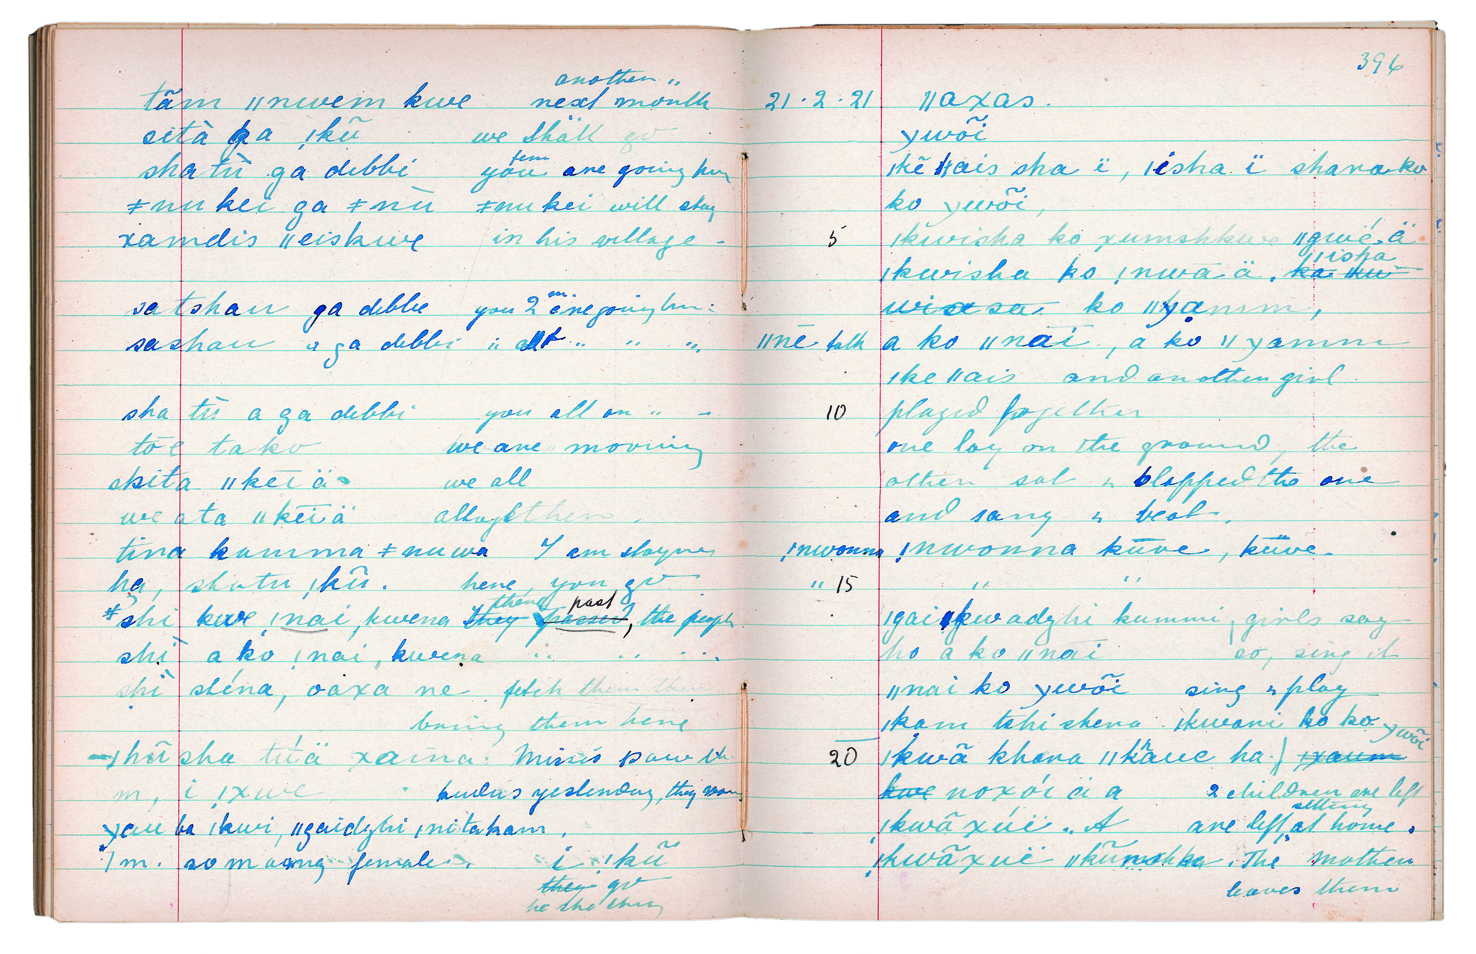 another "
tãm ǁnwem kwe next month
sità ga ǀkũ we shall go
fem
shatù ga debbi you are going
ǂnu kei ga ǂnù ǂnu kei will stay
xamdis ǁeiskwe in his village -
m
satshau ga debbe you 2 are going
sashau " ga debbi " all " " "
sha tù a ga debbi you all on " -
toe tako we are moving
skita ǁkeïä we all
we ata ǁkeïä altogether.
tina kamma ǂnuwa I am staying
ha, shatu ǀkũ. here, you go
then past
shi kwe ǃnai, kwena they passed, the people
shi a ko ǃnai, kwena " " "
shi shéna, oaxa ne fetch them then
bring them here
ǀhũ sha títä xaina: Missis
m, i ǀxwe yesterday, they
yau ba ǀkwi, ǁgaidzhi ǀnitaham.
1 m. so many female. i ǀkũ
they go
396
21.2.21 ǁaxas.
ywõi
ǀkẽ ǁais sha ï, ǀisha ï shana ko
ko ywõi,
5 ǀkwisha ko xumshkwe ǁgwé ä
ǁisha
ǀkwisha ko ǃnwa ä. ka
ko ǁyamm,
ǁnē talk a ko ǁnaí, a ko ǁyamm
ǀke ǁais and another girl
10 played together
one lay on the ground, the
other sat & slapped the one
and sang & beat.
ǃnwonna ǃnwonna küve, küve
" 15 " "
ǀgaiǀkwadzhi kummi, girls say
ho a ko ǁnai so, sing it
ǁnai ko ywõi sing & play
ǀkam tshi shena ǀkwani ko ko ywõi
20 ǀkwã khana ǁkãue ha ǀxaum
kwe noxói ä a 2 children are left
sitting
ǀkwã xúï. A are left at home.
ǀkwãxuï ǁkũmshka. The mother
leaves them